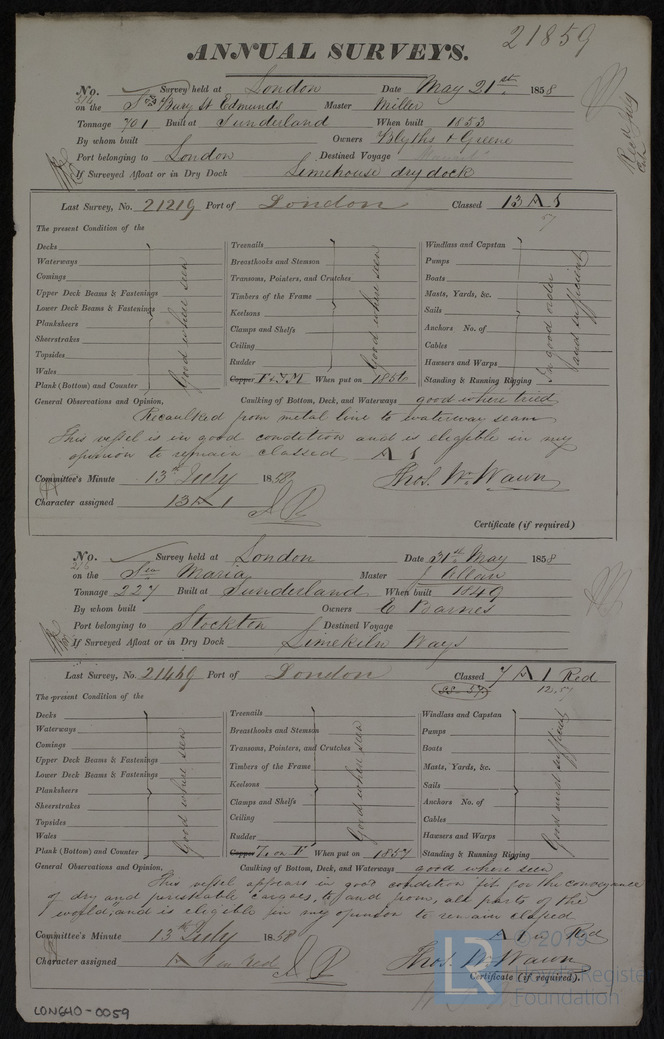 21859
ANNUAL SURVEYS.
No. 314 Survey held at London Date May 21st 1858
on the Bury St Edmunds Master Miller
Tonnage 701 Built at Sunderland When built 1853
By whom built Owners Blyths & Greene
Port belonging to London Destined Voyage
If Surveyed Afloat or in Dry Dock Limehouse dry dock
Last Survey, No. 21219 Port of London Classed 13 A 1
57
The present Condition of the
Decks
Waterways
Comings
Upper Deck Beams & Fastenings
Lower Deck Beams & Fastenings
Planksheers
Sheerstrakes
Topsides
Wales
Plank (Bottom) and Counter
Good where seen
Treenails
Breasthooks and Stemson
Transoms, Pointers, and Crutches
Timbers of the Frame
Keelsons
Clamps and Shelfs
Ceiling
Rudder
Copper F & YM When put on 1856
Good where seen
Windlass and Capstan
Pumps
Boats
Masts, Yards, &c.
Sails
Anchors No. of
Cables
Hawsers and Warps
Standing & Running Rigging
In good order
and sufficient
General Observations and Opinion, Caulking of Bottom, Deck, and Waterways good where tried
Recaulked from metal line to waterway seam
This vessel is in good condition and is eligible in my
opinion to remain classed A 1
Committee's Minute 13th July 1858 Thos. W. Wawn
Character assigned 13 A 1
Certificate (if required)
No. 216 Survey held at London Date 31st May 1858
on the Maria Master J Allan
Tonnage 227 Built at Sunderland When built 1849
By whom built Owners E Barnes
Port belonging to Stockton Destined Voyage
If Surveyed Afloat or in Dry Dock Limekiln Ways
Last Survey, No. 21449 Port of London Classed 7 A 1 Red
12.57
The present Condition of the
Decks
Waterways
Comings
Upper Deck Beams & Fastenings
Lower Deck Beams & Fastenings
Planksheers
Sheerstrakes
Topsides
Wales
Plank (Bottom) and Counter
Good where seen
Treenails
Breasthooks and Stemson
Transoms, Pointers, and Crutches
Timbers of the Frame
Keelsons
Clamps and Shelfs
Ceiling
Rudder
Copper When put on 1857
Good where seen
Windlass and Capstan
Pumps
Boats
Masts, Yards, &c.
Sails
Anchors No. of
Cables
Hawsers and Warps
Standing & Running Rigging
Good and sufficient
General Observations and Opinion, Caulking of Bottom, Deck, and Waterways good where seen
This vessel appears in good condition fit for the conveyance
of dry and perishable cargoes, to, and from, all parts of the
world, and is eligible in my opinion to remain classed
A 1 in Red
Committee's Minute 13th July 1858
Thos. W. Wawn
Character assigned A in Red
Certificate (if required).
LR © 2019
Lloyd's Register
Foundation
LON640-0059